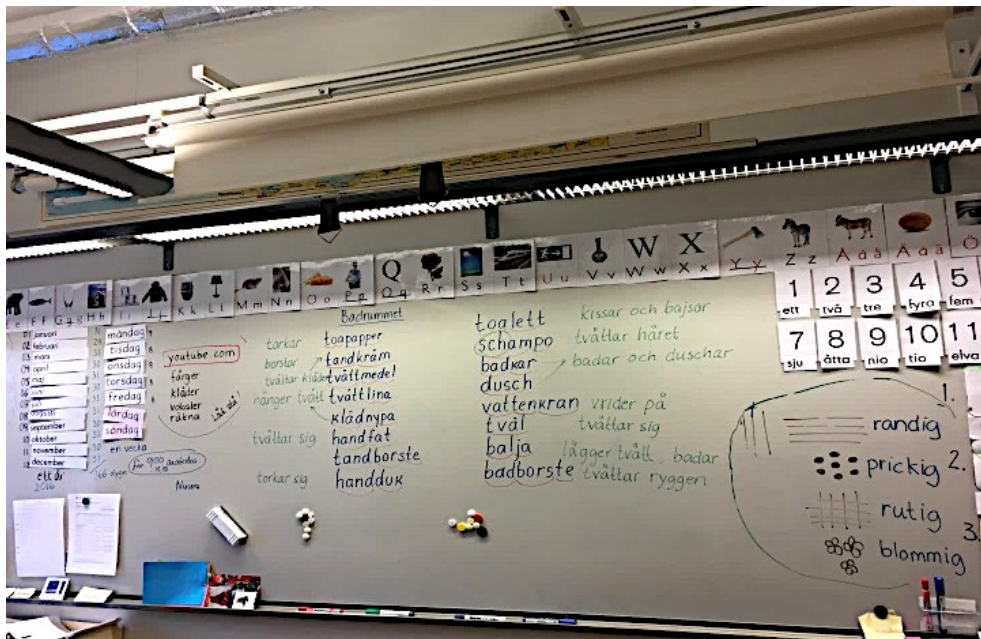 F f G g H h I i J j K k L l M m N n O o P p Q q R r S s T t U u V v W w X x Y y Z z Å å Ä ä Ö
Q
W
X
1 2 3 4 5
ett två tre fyra fem
7 8 9 10 11
sju åtta nio tio elva
01 januari
02 februari
03 mars
04 april
05 maj
06 juni
07 juli
08 augusti
09 september
10 oktober
11 november
12 december
ett år
2016
måndag
tisdag
onsdag
torsdag
fredag
lördag
söndag
en vecka
youtube.com
färger
kläder
vokaler
räkna
Badrummet
toapapper
torkar
tandkräm
borstar
tvättmedel
tvättar kläder
tvättlina
hänger tvätt
klädnypa
handfat
tvättar sig
tandborste
handduk
torkar sig
toalett kissar och bajsar
schampo tvättar håret
badkar badar och duschar
dusch
vattenkran vrider på
tvål tvättar sig
balja lägger tvätt, badar
badborste tvättar ryggen
randig
prickig
rutig
blommig
1.
2.
3.